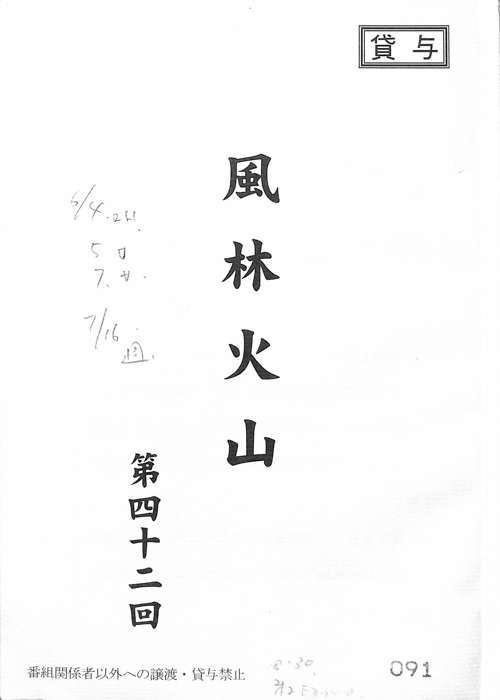 貸与
風林火山
第四十二回
6/4
5
7
7/16
週
番組関係者以外への譲渡・貸与禁止
8:30
091